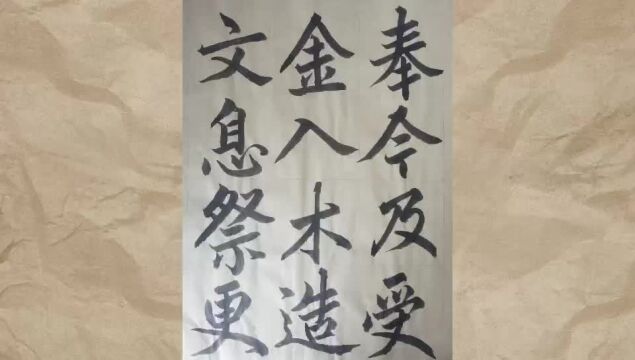 奉今及受
金入木造
文息祭更